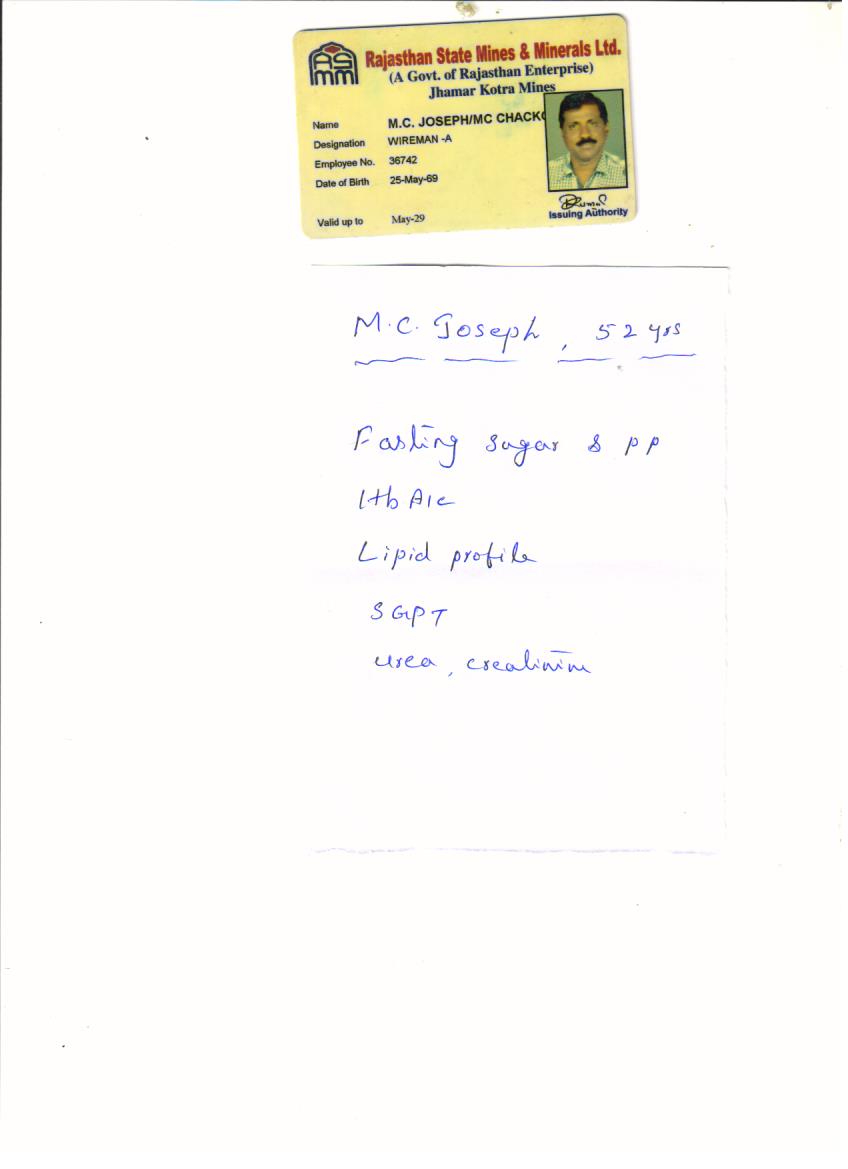 RSMM
Rajasthan State Mines & Minerals Ltd.
(A Govt. of Rajasthan Enterprise)
Jhamar Kotra Mines
Name M.C. JOSEPH/MC CHACKO
Designation WIREMAN -A
Employee No. 36742
Date of Birth 25-May-69
Issuing Authority
Valid up to May-29
M.C. Joseph, 52 yrs
Fasting sugar & PP
HbA1c
Lipid profile
SGPT
urea, creatinine